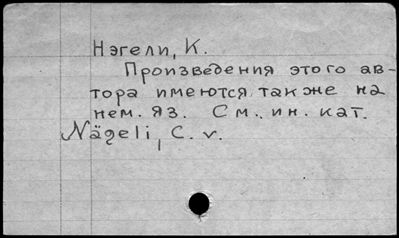 Нэгели, К.
Произведения этого ав-
тора имеются также на
нем. яз. См. ин. кат.
Nägeli, C. v.